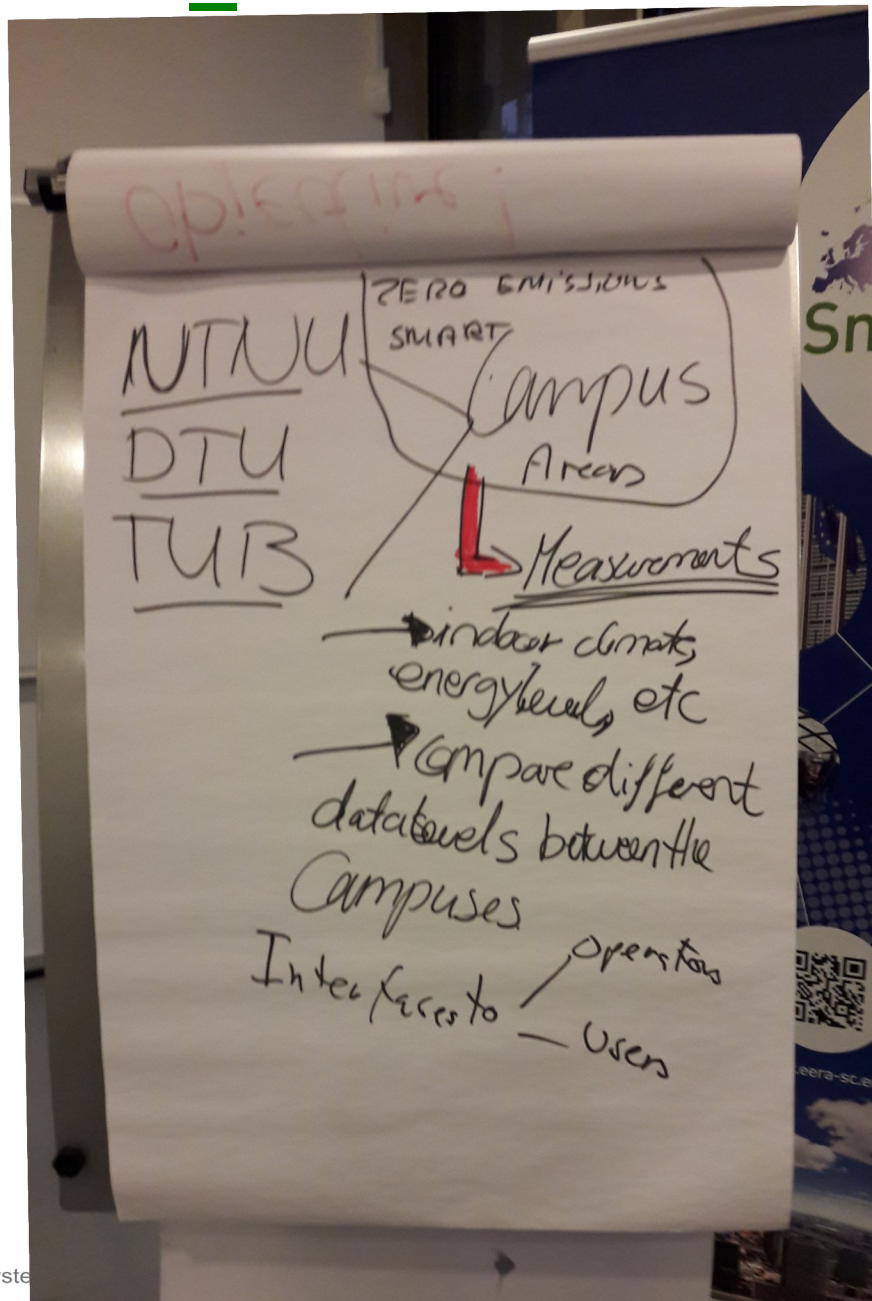 ZERO EMISSIONS
SMART
NTNU
Campus
Areas
DTU
TUB
Measurements
indoor climate,
energy level, etc
Compare different
data levels between the
Campuses
Interfaces to
Operators
Users
Sm
.eera-sc.e
rste